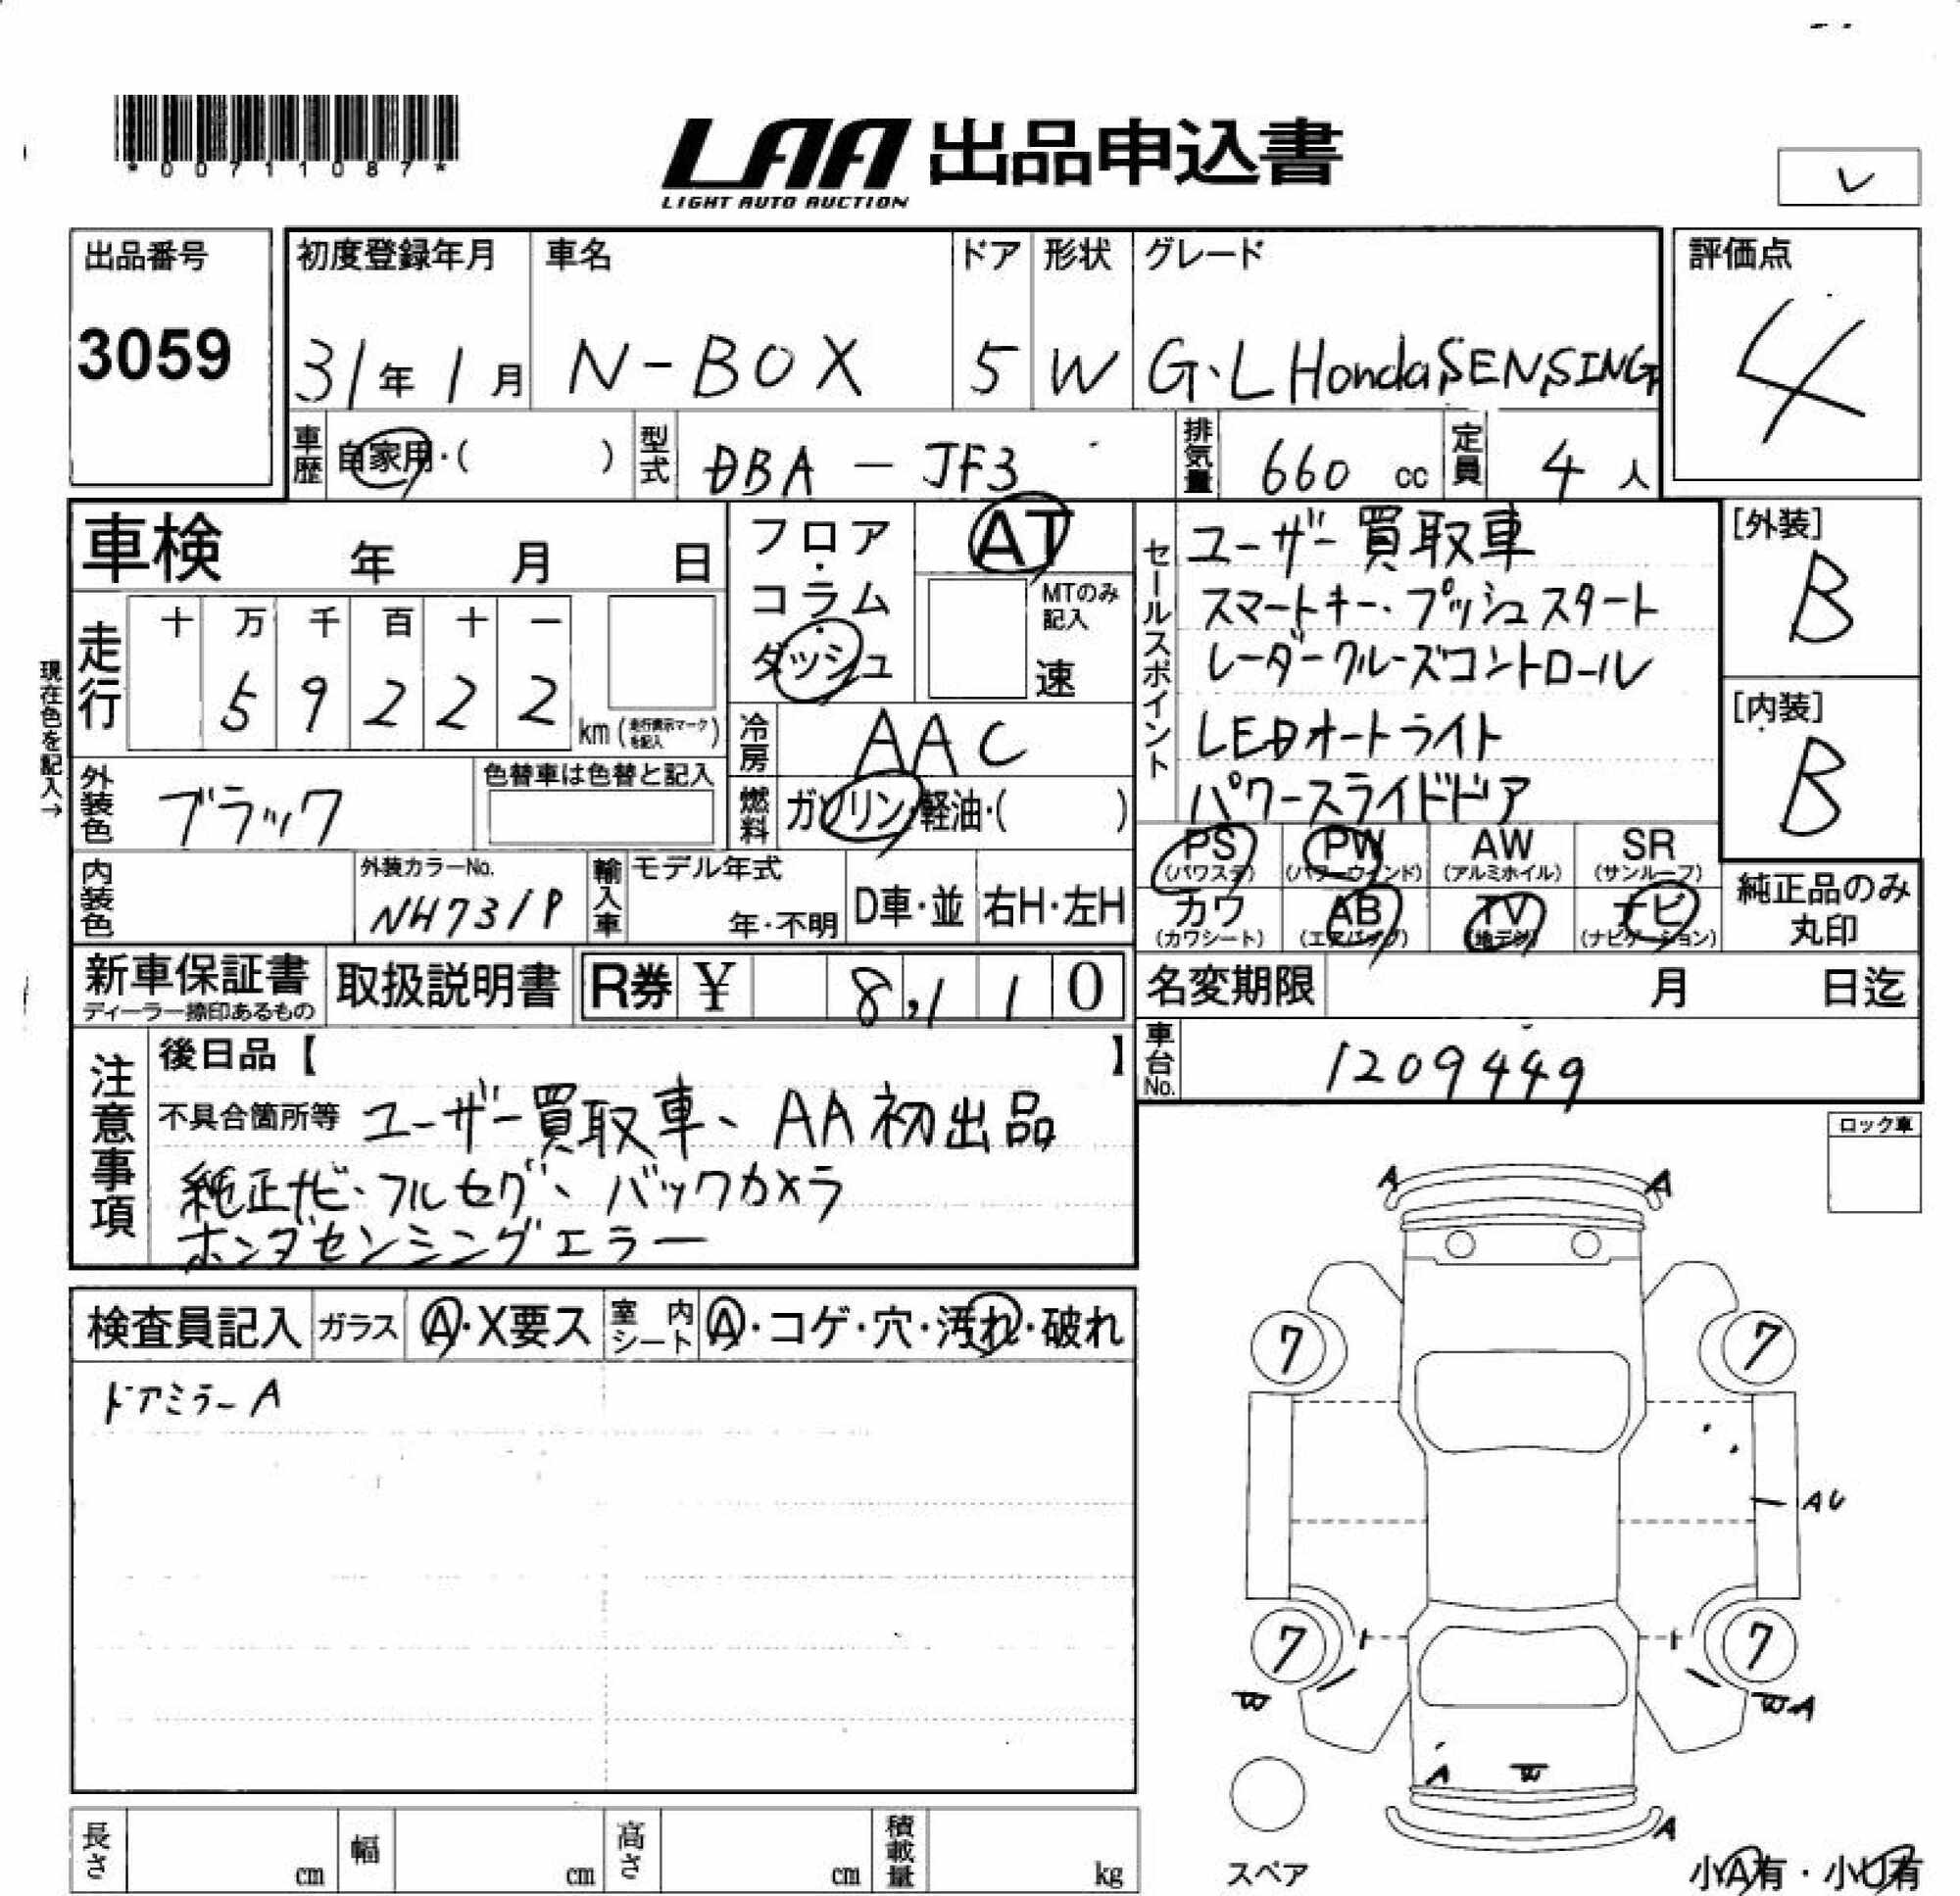 *00711087*
LAA 出品申込書
LIGHT AUTO AUCTION
レ
出品番号
3059
初度登録年月
31年1月
車名
N-BOX
ドア
5
形状
W
グレード
G・L Honda SENSING
評価点
4
車歴 自家用・( )
型式 DBA - JF3
排気量 660 cc
定員 4 人
車検 年 月 日
走行
十 万 千 百 十 一
5 9 2 2 2
km (走行表示マークを記入)
現在色を記入→
外装色 ブラック
色替車は色替と記入
内装色
外装カラーNo.
NH731P
フロア・コラム・ダッシュ
AT
MTのみ記入
速
冷房 AAC
燃料 ガソリン・軽油・( )
輸入車
モデル年式
年・不明
D車・並
右H・左H
セールスポイント
ユーザー買取車
スマートキー・プッシュスタート
レーダークルーズコントロール
LEDオートライト
パワースライドドア
[外装]
B
[内装]
B
PS (パワステ)
PW (パワーウィンド)
AW (アルミホイル)
SR (サンルーフ)
カワ (カワシート)
AB (エアバッグ)
TV (地デジ)
ナビ (ナビゲーション)
純正品のみ
丸印
新車保証書
ディーラー捺印あるもの
取扱説明書
R券 ¥ 8,110
名変期限 月 日迄
車台No. 1209449
注意事項
後日品【 】
不具合箇所等 ユーザー買取車、AA初出品
純正ナビ・フルセグ、バックカメラ
ホンダセンシングエラー
ロック車
検査員記入
ガラス A・X要ス
室内シート A・コゲ・穴・汚れ・破れ
ドアミラーA
A A
7 7
AU
7 7
A
A
スペア
小A有・小U有
長さ cm
幅 cm
高さ cm
積載量 kg